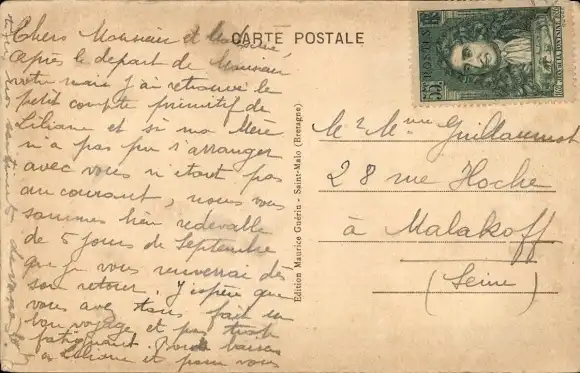 CARTE POSTALE
Chers Monsieur et
Après le départ de Monsieur
votre mari j'ai retrouvé le
petit compte primitif de
Liliane et si ma Mère
n'a pas pu s'arranger
avec vous n'étant pas
au courant, nous vous
sommes bien redevable
de 5 jours de Septembre
que je vous renverrai dès
son retour. J'espère que
vous avez tous fait un
bon voyage et pas trop
fatiguant. Bons baisers
à Liliane et pour vous
Edition Maurice Guérin - Saint-Malo (Bretagne)
POSTES
Mr Mme Guillaumot
28 rue Hoche
à Malakoff
(Seine)